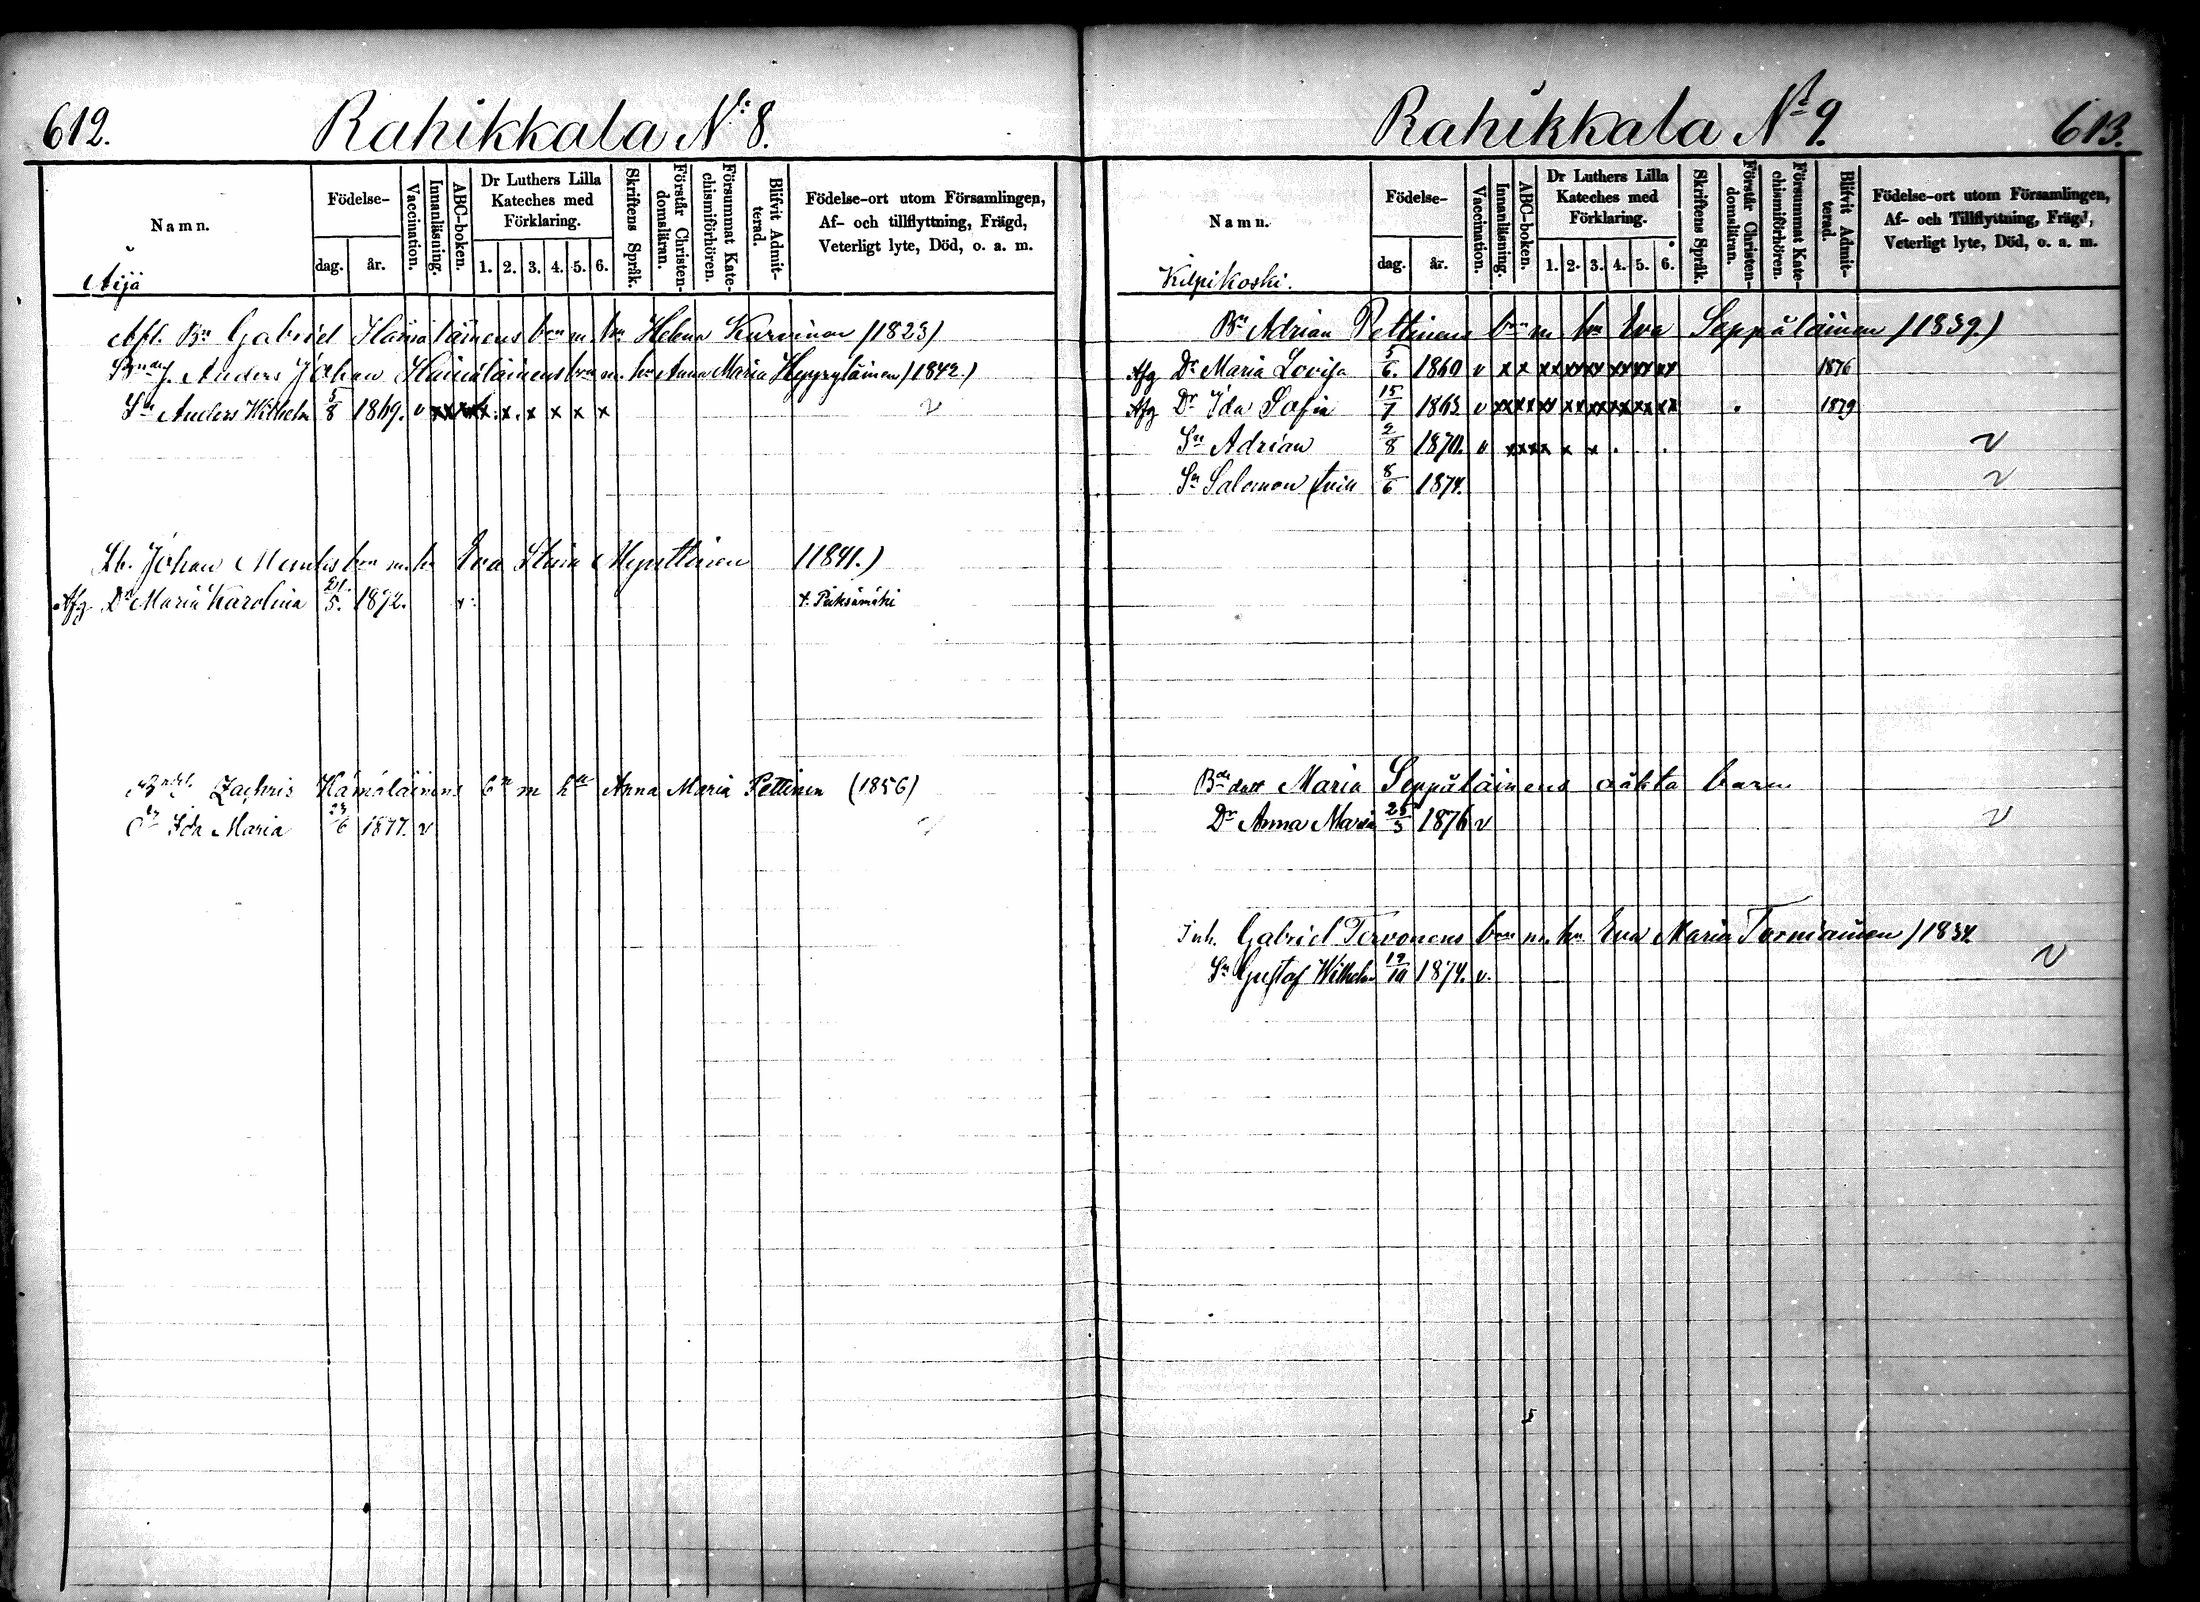 612.
Rahikkala N:o 8.
Namn.
Födelse-
dag.
år.
Vaccination.
Innanläsning.
ABC-boken.
Dr Luthers Lilla
Kateches med
Förklaring.
1. 2. 3. 4. 5. 6.
Skriftens Språk.
Förstår Christen-
domsläran.
Försummat Kate-
chismiförhören.
Blifvit Admit-
terad.
Födelse-ort utom Församlingen,
Af- och tillflyttning, Frägd,
Veterligt lyte, Död, o. a. m.
Äijä
Afl. Bn Gabriel Hämäläinens bn m. hu Helena Kurvinen (1823)
Anders Johan Hämäläinens bn m. hu Anna Maria Heyryläinen (1842.)
Sn Anders Wilhelm 5/8 1869. v x x x x x x x x x
Lb. Johan bn m. hu Eva Stina Mynttinen (1841.)
Afg. Dr Maria Karolina 21/5. 1872. x. t. Pieksämäki
Zachris Hämäläinens bn m hu Anna Maria Pettinen (1856)
dr Ida Maria 23/6 1877. v
Rahikkala No 9.
613.
Namn.
Födelse-
dag.
år.
Vaccination.
Innanläsning.
ABC-boken.
Dr Luthers Lilla
Kateches med
Förklaring.
1. 2. 3. 4. 5. 6.
Skriftens Språk.
Förstår Christen-
domsläran.
Försummat Kate-
chismiförhören.
Blifvit Admit-
terad.
Födelse-ort utom Församlingen,
Af- och Tillflyttning, Frägd,
Veterligt lyte, Död, o. a. m.
Kilpikoski.
Bn Adrian Pettinens bn m. hu Eva Seppäläinen (1839)
Afg Dr Maria Lovisa 5/6. 1860 v x x xx xx xx xx xx xx 1876
Afg Dr Ida Sofia 15/7 1863 v xx xx xx xx xx xx xx xx 1879
Sn Adrian 2/8 1870. v xx xx x x v
Sn Salomon 8/6 1874. v
Bdedott Maria Seppäläinens oäkta barn
Dr Anna Maria 25/3 1876 v v
Inh. Gabriel Tervonens bn m. hu Eva Maria Torniainen (1834
Sn Gustaf Wilhelm 19/10 1874. v. v